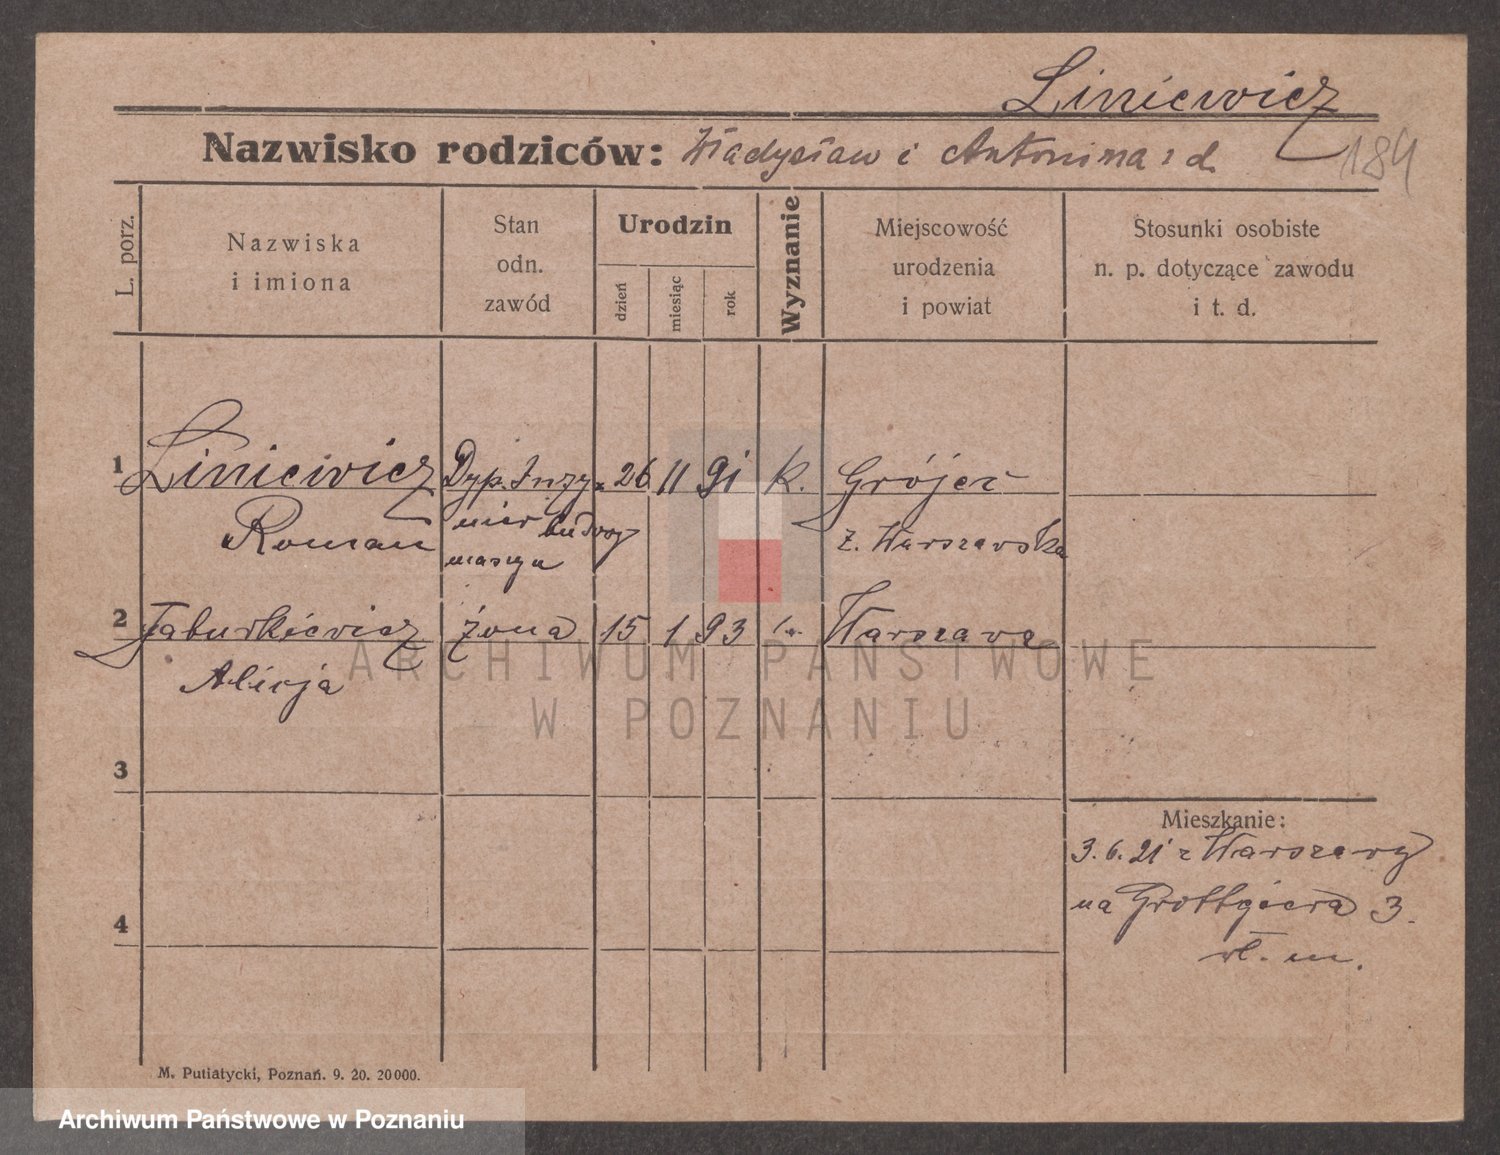 Liniewicz
Nazwisko rodziców: Władysław i Antonina z d.
184
L. porz.
Nazwiska
i imiona
Stan
odn.
zawód
Urodzin
dzień
miesiąc
rok
Wyznanie
Miejscowość
urodzenia
i powiat
Stosunki osobiste
n. p. dotyczące zawodu
i t. d.
1 Liniewicz Dyp. Inży- 26 11 91 k. Grójec
Roman nier budowy z. Warszawska
maszyn
2 Jaburkiewicz żona 15 1 93 Warszawa
Alicja
ARCHIWUM PAŃSTWOWE
W POZNANIU
3
Mieszkanie:
3. 6. 21 z Warszawy
4
na Grottgiera 3.
wł. m.
M. Putiatycki, Poznań. 9. 20. 20000.
Archiwum Państwowe w Poznaniu